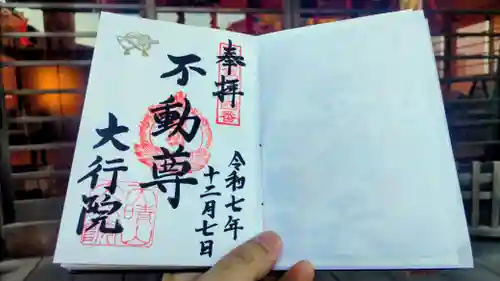 奉拝
不動尊
大行院
令和七年
十二月七日